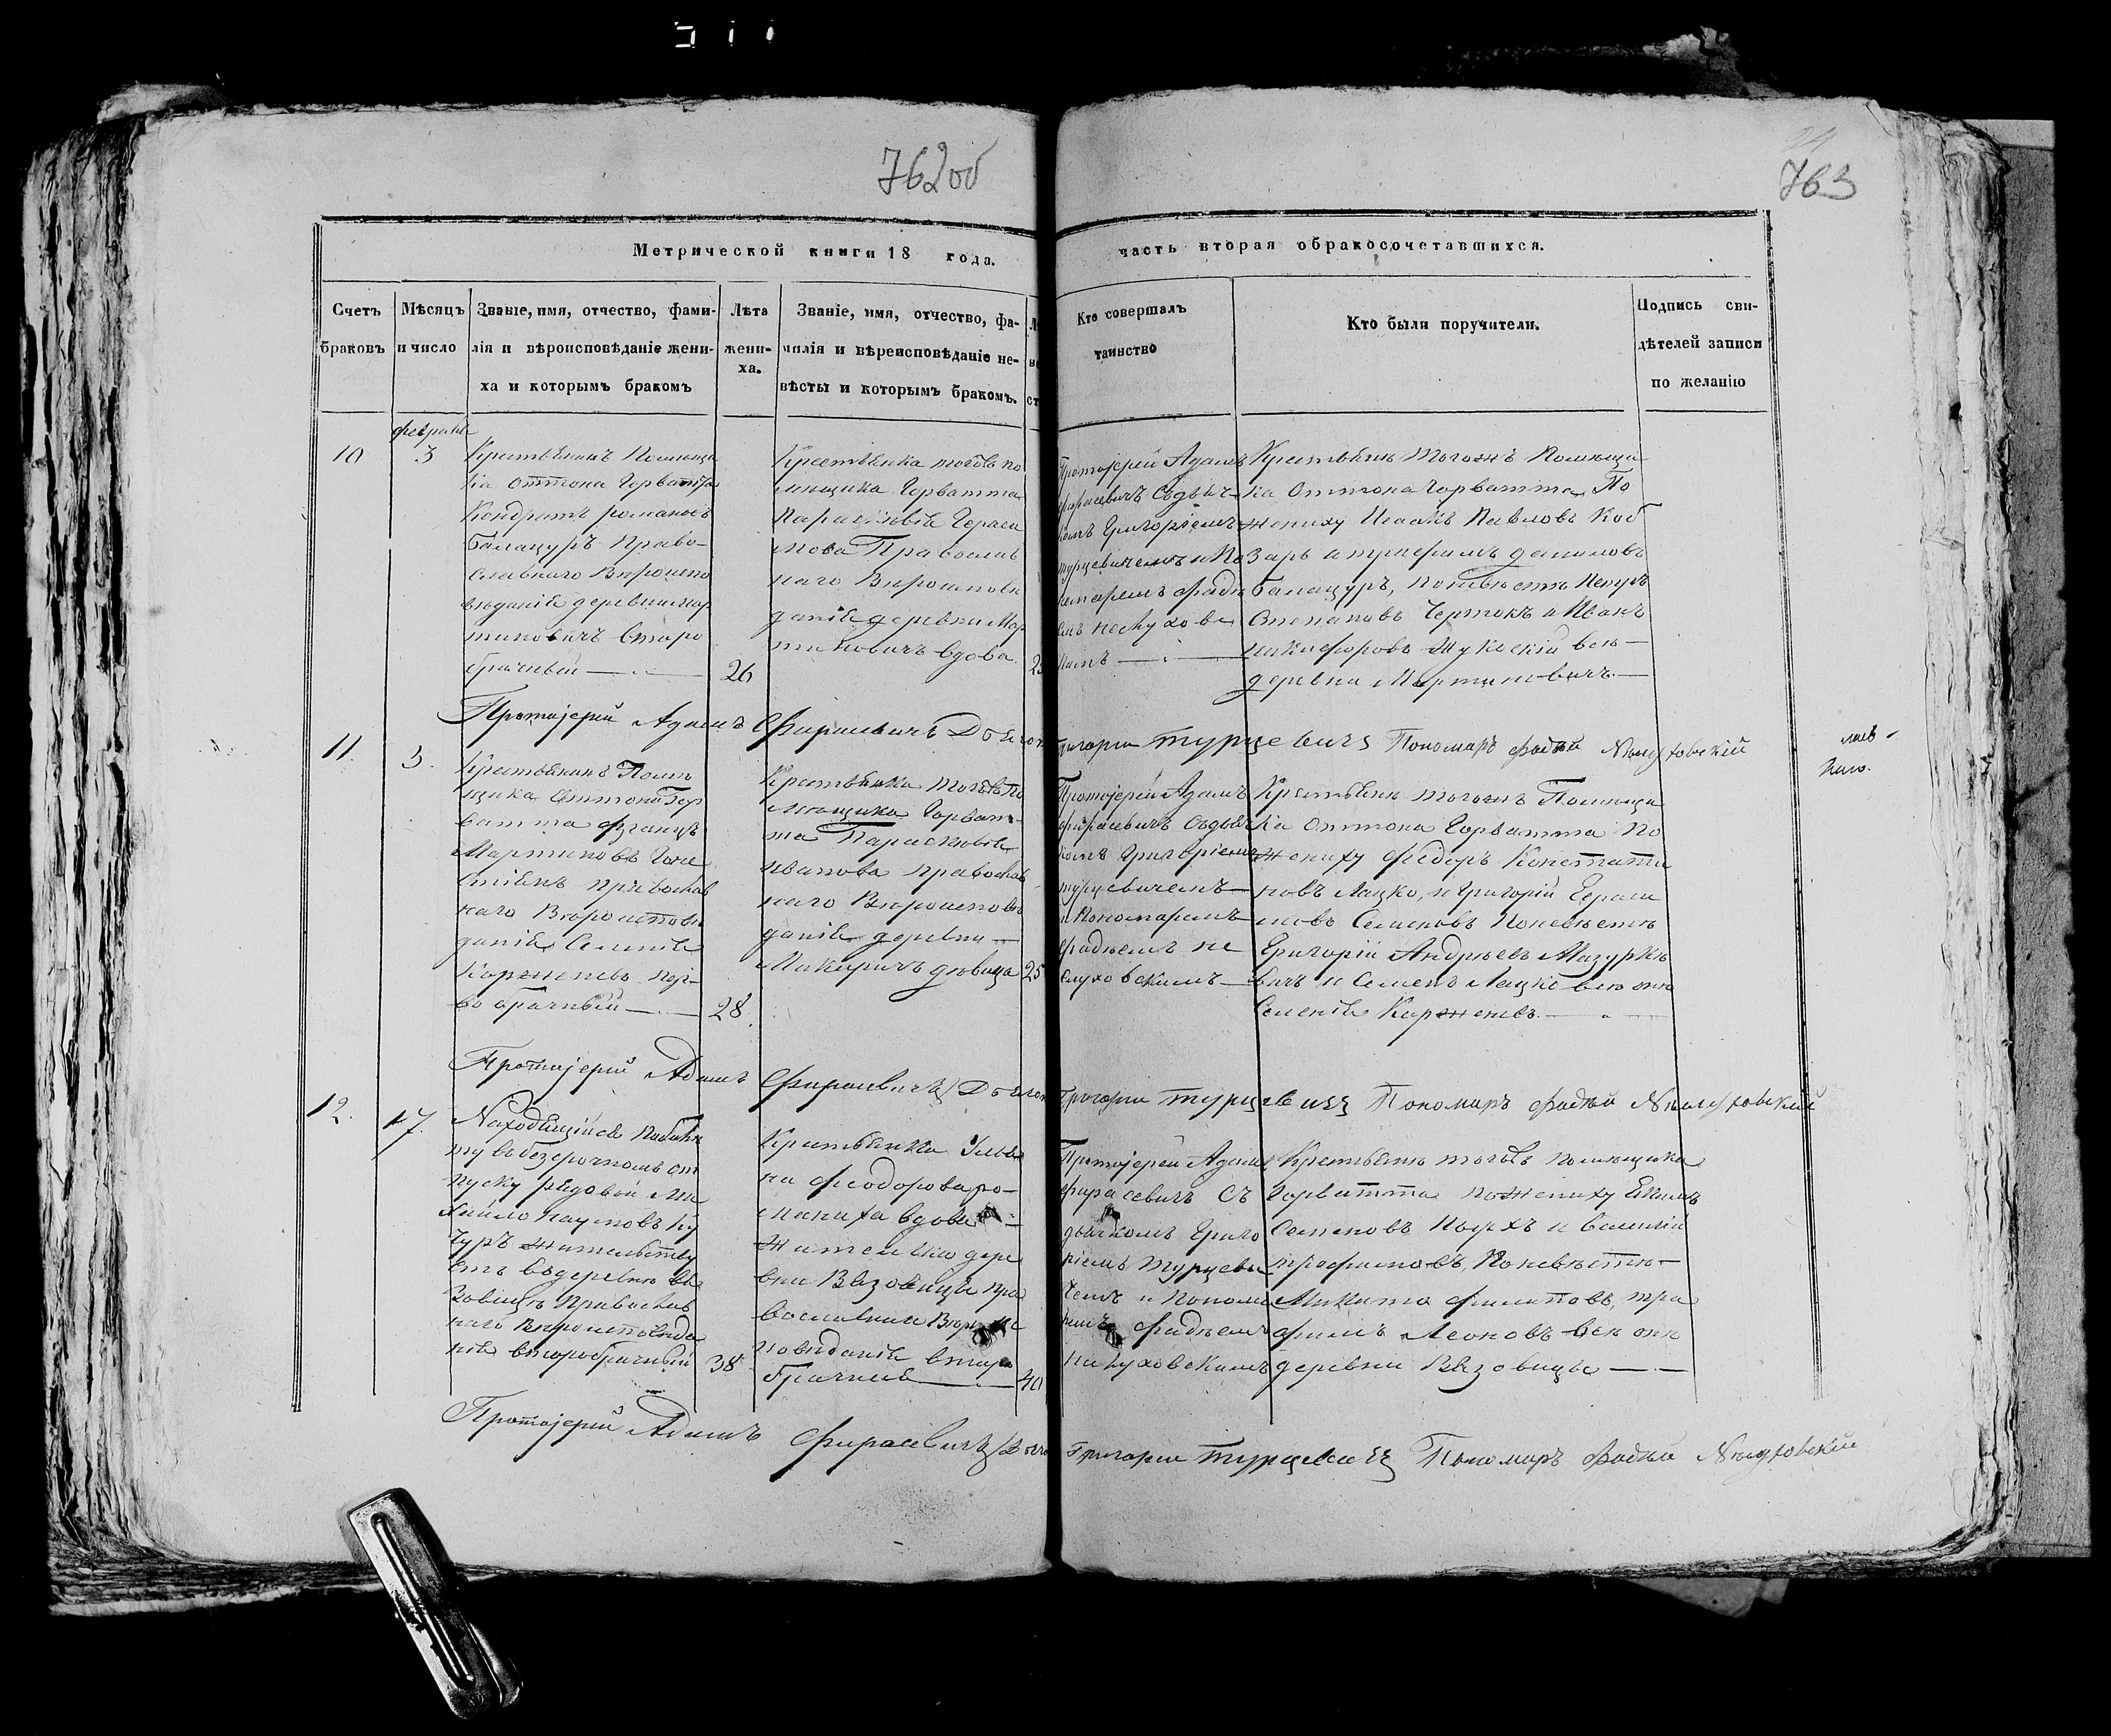 762об
763
Метрической книги 18 года.
часть вторая обракосочетавшихся.
Счетъ браковъ
Мѣсяцъ и число
Званіе, имя, отчество, фами-
лія и вѣроисповѣданіе жени-
ха и которымъ бракомъ
Лѣта
жени-
ха.
Званіе, имя, отчество, фа-
милія и вѣреисповѣданіе не-
вѣсты и которымъ бракомъ.
Кто совершалъ
таинство
Кто были поручители.
Подпись сви-
дѣтелей записи
по желанію
10
3
Крестьянинъ Помѣщи
ка Оттона Горватта
Кондратъ романовъ
Балацуръ Право-
славнаго Вѣроиспо
вѣданія деревни Мар
тиновичъ второ
брачный
26
Крестьянка тогожъ по
мѣщика Горватта
Параскевія Гераси
мова Православ
наго Вѣроисповѣ
данія деревни Мар
тиновичъ вдова
Протоіерей Адамъ
фирасевичъ Содьяч-
комъ Григоріемъ
турцевичемъ и По
номаремъ фадѣ
емъ неслухов
скимъ
Крестьяне тогожъ Помѣщи
ка Оттона Горватта По
жениху Исаакъ Павловъ Коб
заръ и трофимъ даниловъ
Балацуръ, по невѣсте
Степановъ Чертокъ и Иванъ
никифоровъ Жуковскій всѣ
деревни Мартиновичъ
Протоіерей Адамъ Фирасевичъ
Григорій турцевичъ Пономаръ фадѣй Неслуховскій
11.
3.
Крестьянинъ Помѣ
щика Оттона Гор
ватта
Мартиновъ
православ
наго Вѣроисповѣ
данія Селенія
Корженевъ пер-
вобрачный
28
Крестьянка тогожъ По
мѣщика Горват-
та Параскевія
иванова православ
наго Вѣроисповѣ
данія деревни
Макаричъ дѣвица
25
Протоіерей Адамъ
фирасевичъ Содья
комъ Григоріемъ
турцевичемъ
и Пономаремъ
фадѣемъ не
слуховскимъ
Крестьяне тогожъ Помѣщи
ка Оттона Горватта По
жениху Федоръ Констати
новъ Лацко, и Григорій Гераси
мовъ Семеновъ Поневѣсте
Григорій Андрѣевъ Мазурке
вичъ и Семенъ Лацко всѣ они
Селенія Корженевъ
Протоіерей Адамъ Фирасевичъ
Григорій турцевичъ Пономаръ фадѣй Неслуховскій
12.
17.
Находящійся
въ безсрочномъ от
пуску рядовой Ми
хайло наумовъ
жительству
етъ въ деревнѣ Вя
зовицѣ Православ
наго Вѣроисповѣда
нія второбрачный
38
Крестьянка Улья
на Феодорова ро-
маниха вдова
Жителька дере
вни Вязовицы пра
вославнаго Вѣроис
повѣданія второ
брачная
40
Протоіерей Адамъ
фирасевичъ Съ
дьячкомъ Григо
ріемъ турцеви
чемъ и Понома
ремъ фадѣемъ
неслуховскимъ
Крестьяне тогожъ помѣщика
Горватта по жениху
Семеновъ
трофимовъ, Поневѣсте
Микита филиповъ, тро
фимъ Леоновъ всѣ они
деревни Вязовицы
Протоіерей Адамъ Фирасевичъ
Григорій турцевичъ Пономаръ фадѣй Неслуховскій